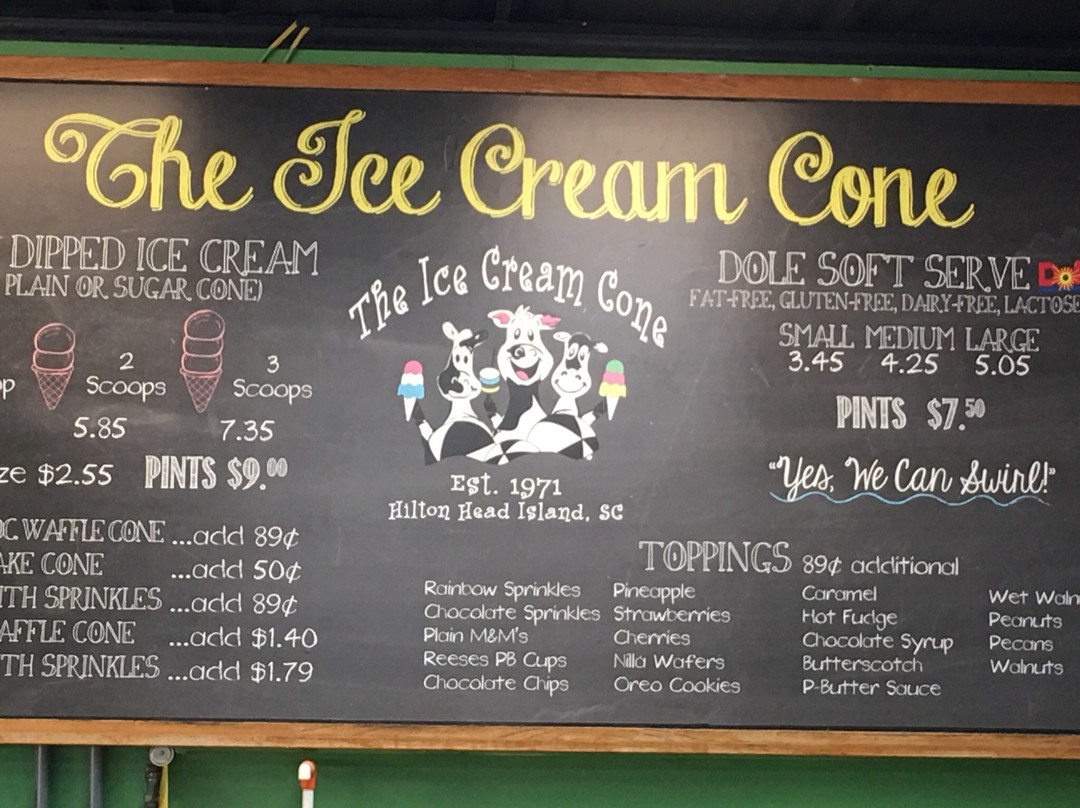 The Ice Cream Cone
DIPPED ICE CREAM
PLAIN OR SUGAR CONE)
2 Scoops
3 Scoops
5.85 7.35
$2.55 PINTS $9.00
WAFFLE CONE ...add 89¢
CONE ...add 50¢
SPRINKLES ...add 89¢
CONE ...add $1.40
SPRINKLES ...add $1.79
The Ice Cream Cone
Est. 1971
Hilton Head Island, SC
DOLE SOFT SERVE
FAT-FREE, GLUTEN-FREE, DAIRY-FREE, LACTOSE
SMALL MEDIUM LARGE
3.45 4.25 5.05
PINTS $7.50
"Yes, We Can Swirl!"
TOPPINGS 89¢ additional
Rainbow Sprinkles
Chocolate Sprinkles
Plain M&M's
Reeses PB Cups
Chocolate Chips
Pineapple
Strawberries
Cherries
Nilla Wafers
Oreo Cookies
Caramel
Hot Fudge
Chocolate Syrup
Butterscotch
P-Butter Sauce
Wet
Peanuts
Pecans
Walnuts